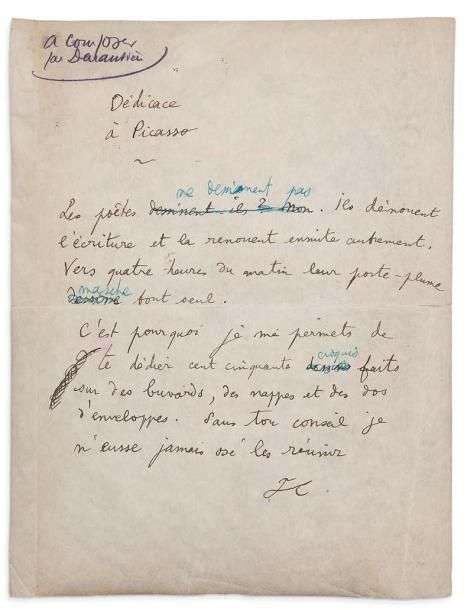 a composer
par Darantière
Dédicace
à Picasso
~
ne dessinent pas
Les poètes dessinent-ils ? Non. Ils dénouent
l'écriture et la renouent ensuite autrement.
Vers quatre heures du matin leur porte-plume
marche
dessine tout seul.
C'est pourquoi je me permets de
croquis
te dédier cent cinquante dessins faits
sur des buvards, des nappes et des dos
d'enveloppes. Sans ton conseil je
n'eusse jamais osé les réunir
JC